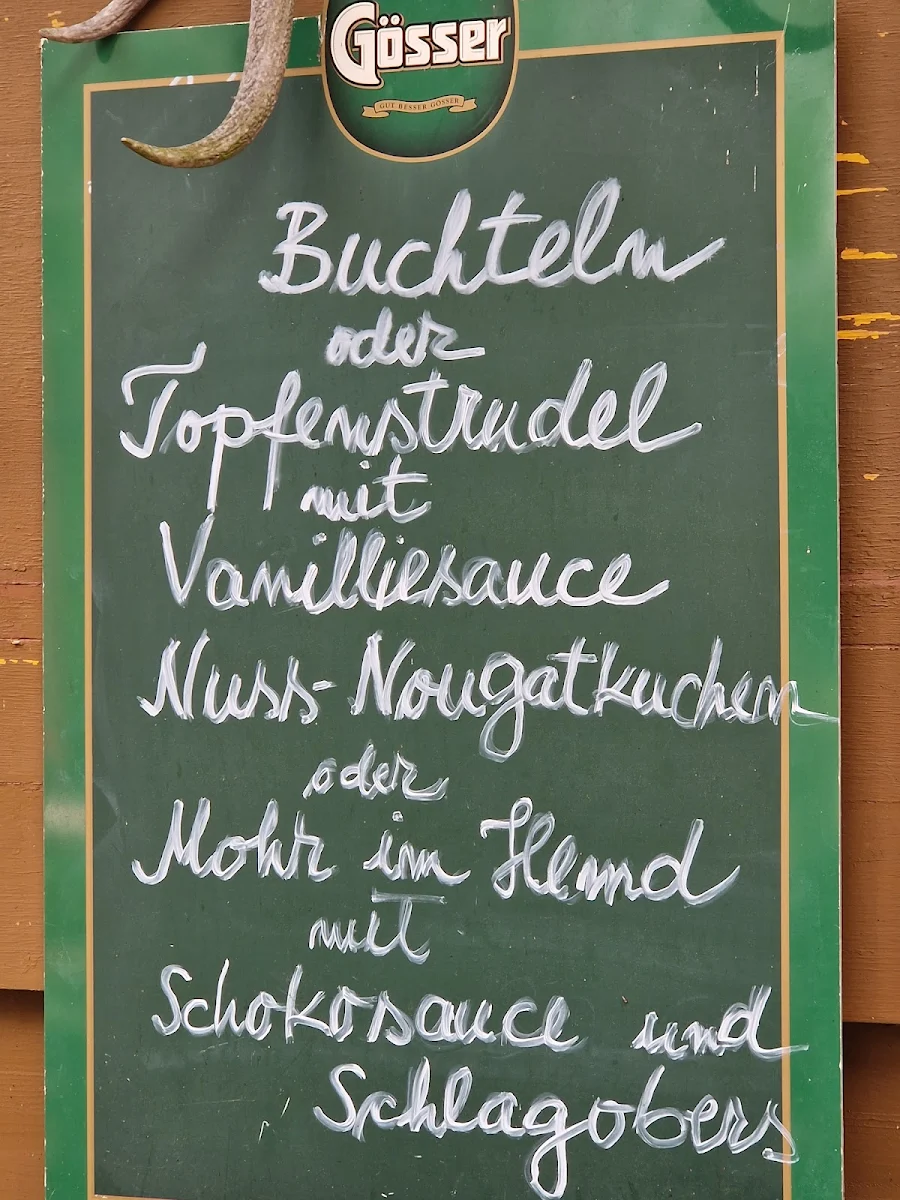 Gösser
GUT BESSER GÖSSER
Buchteln
oder
Topfenstrudel
mit
Vanilliesauce
Nuss-Nougatkuchen
oder
Mohr im Hemd
mit
Schokosauce und
Schlagobers